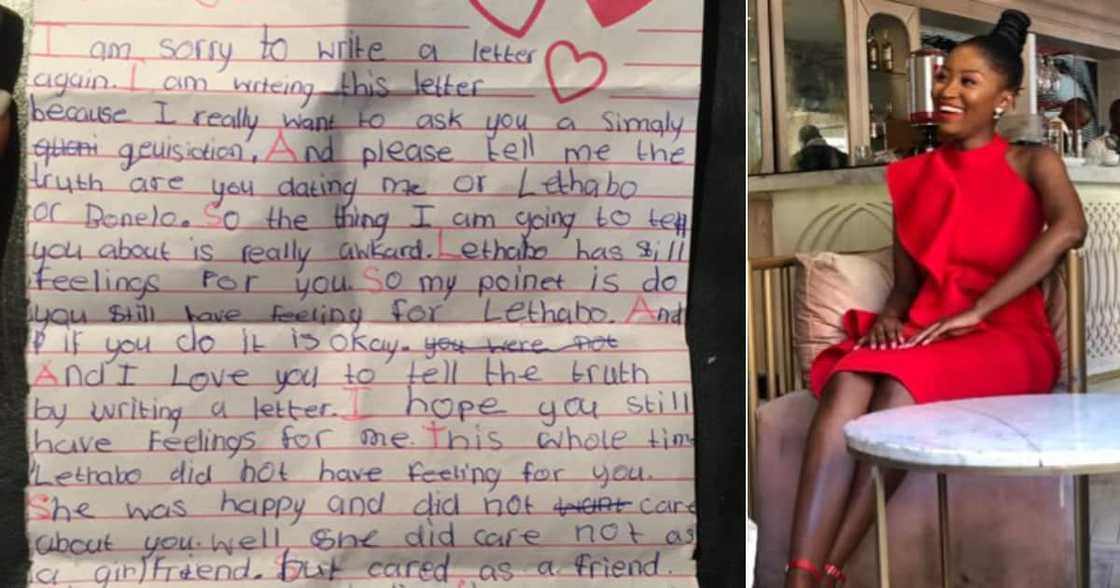 I am sorry to write a letter
again. I am writeing this letter
because I really want to ask you a simaly
geuisiction, And please tell me the
truth are you dating me or Lethabo
or Bonelo. So the thing I am going to tell
you about is really awkard. Lethabo has sill
feelings for you. So my poinet is do
you still have feeling for Lethabo. And
if you do it is okay. you were not
And I Love you to tell the truth
by writing a letter. I hope you still
have feelings for me. This whole tim
Lethabo did not have feeling for you.
She was happy and did not want care
about you. well she did care not as
a girlfriend. but cared as a friend.